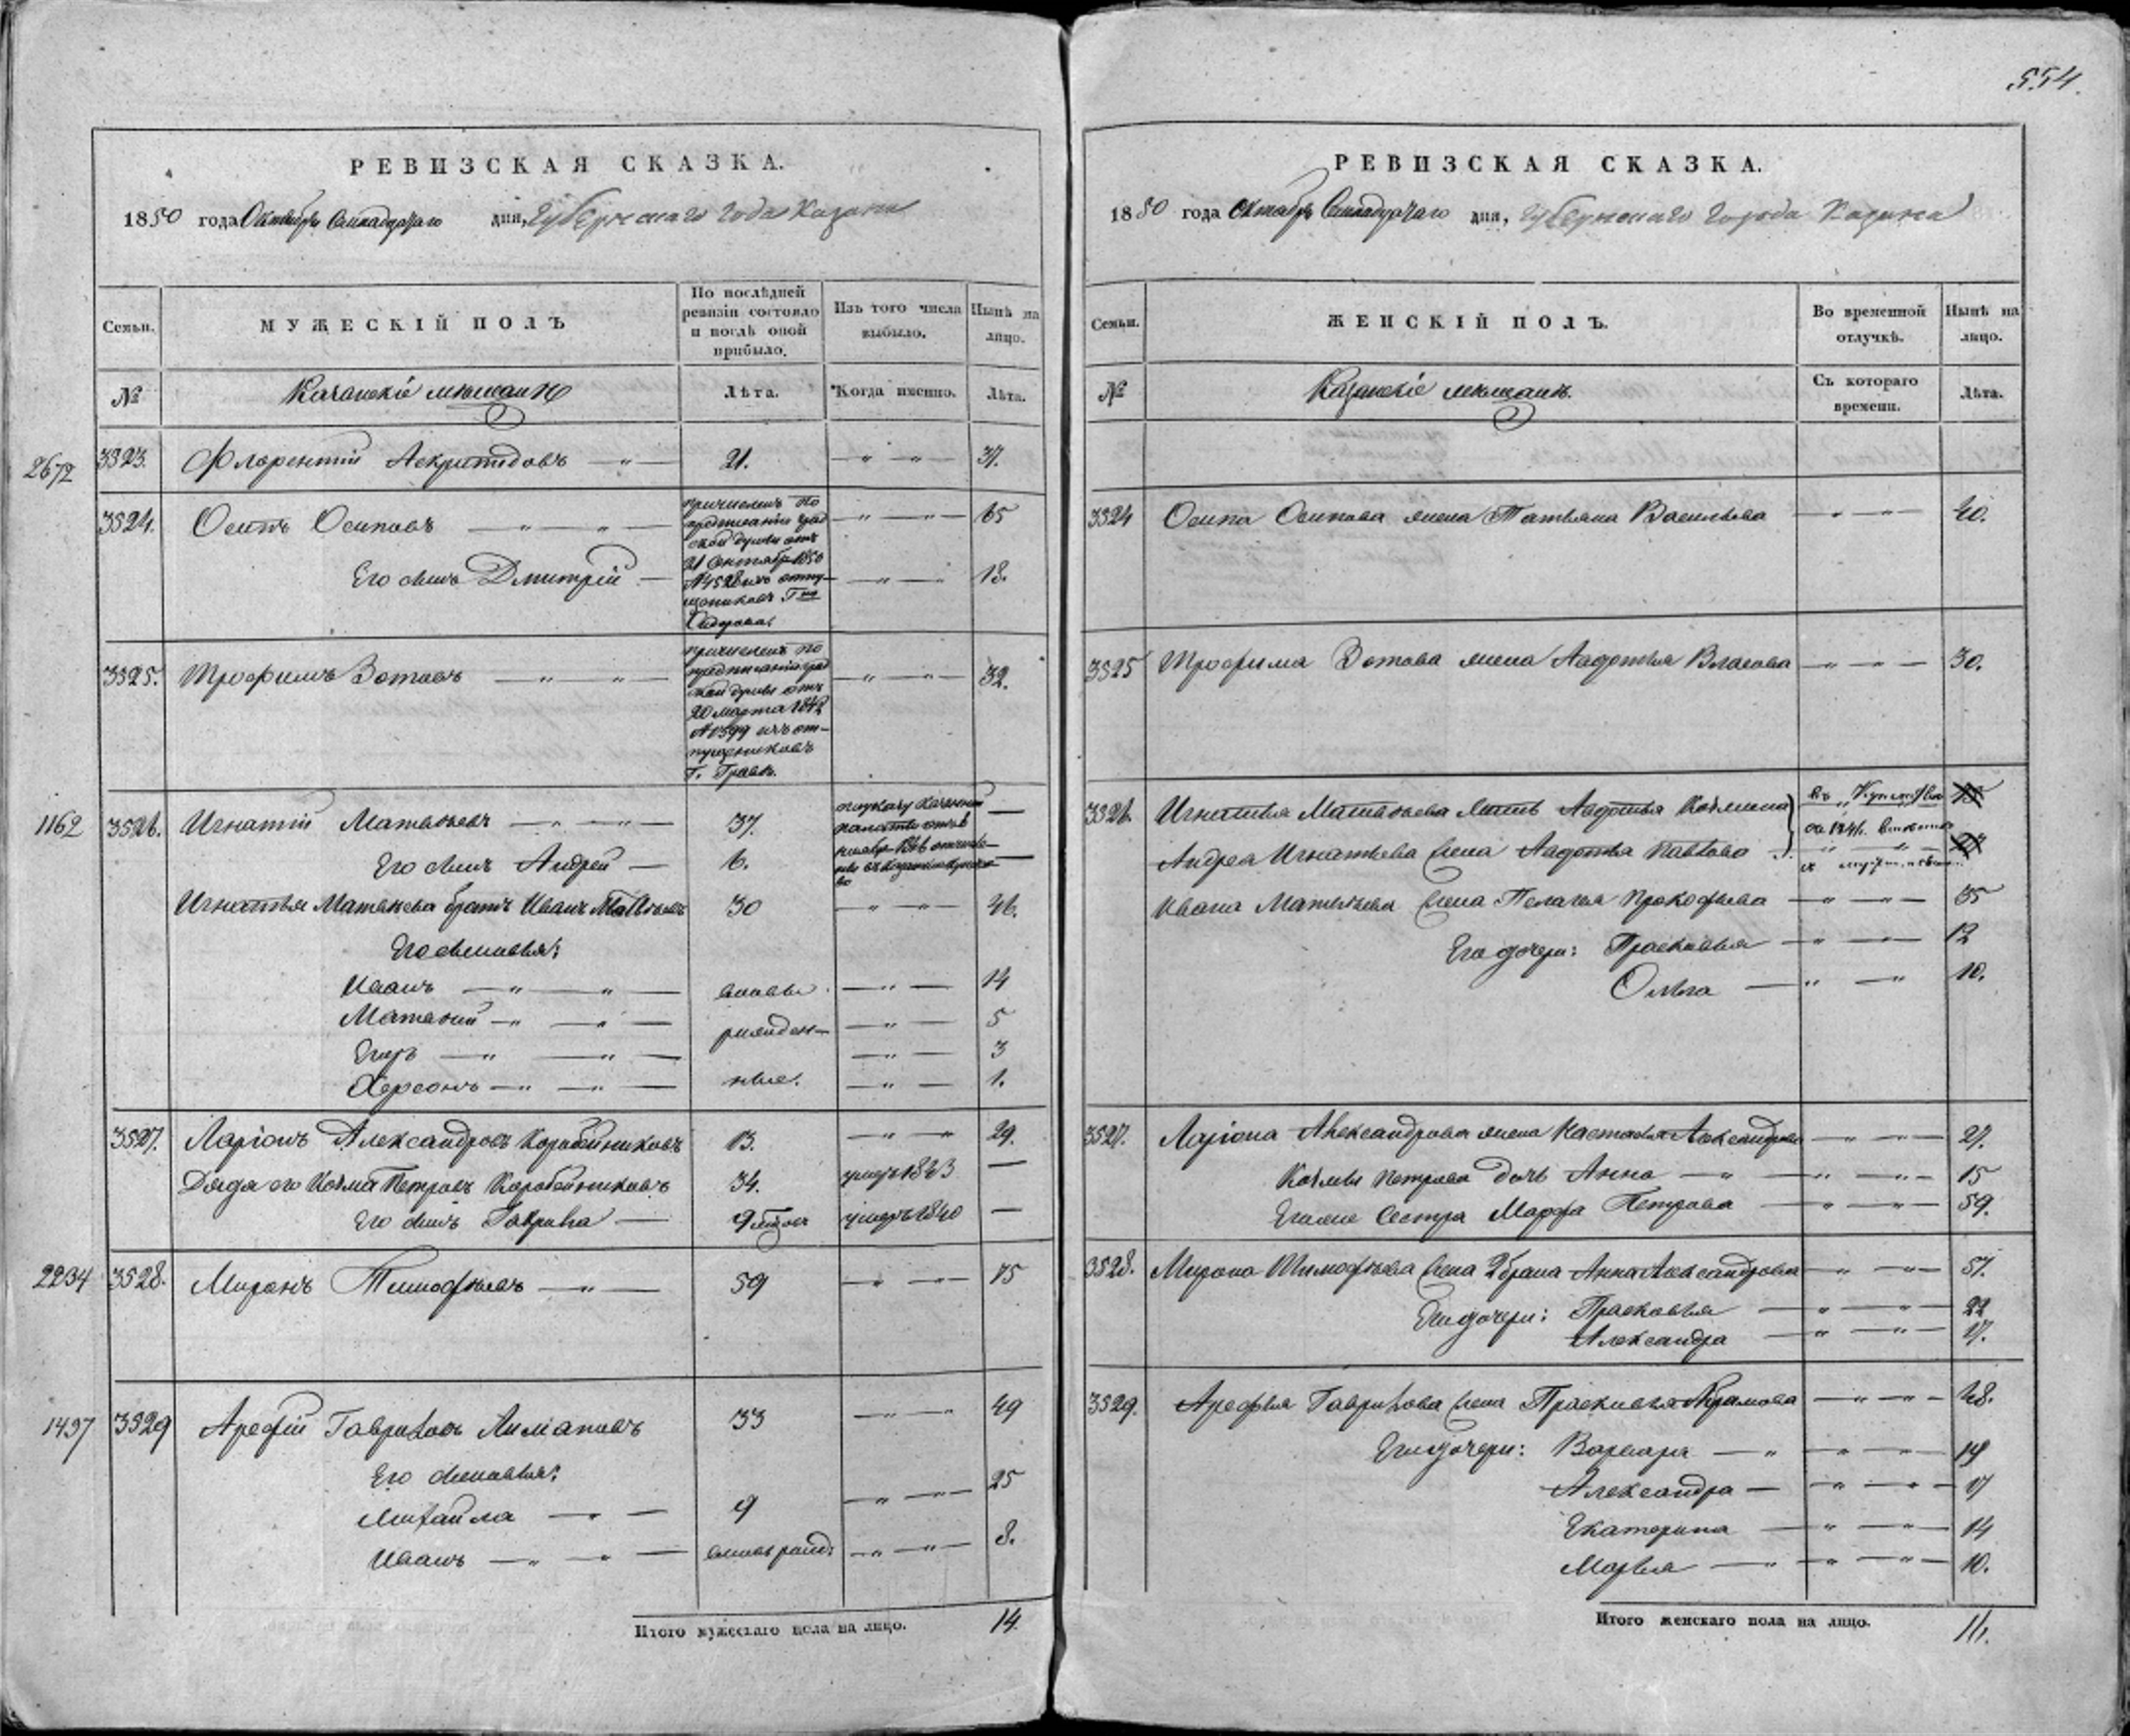 554.
РЕВИЗСКАЯ СКАЗКА.
1850 года Октября Семнадцатаго дня, Губернскаго Года Казани
Семьи. МУЖЕСКІЙ ПОЛЪ По послѣдней ревизіи состояло и послѣ оной прибыло. Изъ того числа выбыло. Нынѣ на лицо.
№ Казанскіе мѣщане Лѣта. Когда именно. Лѣта.
2672 3523. Флорентій Аскритидовъ — " — 21. — " — " — 37.
3524. Осипъ Осиповъ — " — " — причисленъ по — " — " — 65
предписанію град
ской думы отъ
21 Сентября 1850
Его сынъ Дмитрій — №4528 изъ отпу- — " — " 18.
щениковъ Гна
Сидорова.
3525. Трофимъ Зотовъ — " — " — причисленъ по — " — " — 32.
предписанію град
ской думы отъ
20 Марта 1842
№1399 изъ от-
пущениковъ
Г. Граве.
1162 3526. Игнатій Матвѣевъ — " — " — 37. по указу Казенной —
палаты отъ 6
Его сынъ Андрей — 6. ноября 1846 —
Игнатья Матвѣева братъ Иванъ Матвѣевъ 30 — " — " — 46.
Его сыновья:
Иванъ — " — " — вновь — " — 14
Матвѣй — " — " — рожден- — " — 5
Егоръ — " — " — — " — 3
Херсонъ — " — " — ные. — " — 1.
3527. Ларіонъ Александровъ Коробейниковъ 13. — " — " 29.
Дядя его Козма Петровъ Коробейниковъ 34. умеръ 1843 —
Его сынъ Гаврила — 9 умеръ 1840 —
2234 3528. Миронъ Тимофѣевъ — " — 59 — " — " — 75
1437 3529 Арефій Гавриловъ Лимановъ 33 — " — " — 49
Его сыновья:
Михайла — " — 9 — " — " — 25
Иванъ — " — " — вновь рожд: — " — " — 8.
Итого мужескаго пола на лицо. 14.
РЕВИЗСКАЯ СКАЗКА.
1850 года Октября Семнадцатаго дня, Губернскаго Города Казани
Семьи. ЖЕНСКІЙ ПОЛЪ. Во временной отлучкѣ. Нынѣ на лицо.
№ Казанскіе мѣщане. Съ котораго времени. Лѣта.
3524 Осипа Осипова жена Татьяна Васильева — " — " 40.
3525 Трофима Зотова жена Авдотья Власова — " — " — 30.
3526. Игнатья Матвѣева жена Авдотья Козмина
Андрея Игнатьева жена Авдотья Павлова
Ивана Матвѣева жена Пелагея Прокофьева — " — " — 35
Его дочери: Прасковья — " — " — 12
Ольга — " — " 10.
3527. Ларіона Александрова жена Настасья Александрова — " — " — 27.
Козмы Петрова дочь Анна — " — " — " — 15
Его же сестра Марфа Петрова — " — " — 59.
3528. Мирона Тимофѣева жена 2 брака Анна Александрова — " — " — 57.
Его дочери: Прасковья — " — " — 22
Александра — " — " — 17.
3529. Арефья Гаврилова жена Прасковья Абрамова — " — " — 48.
Его дочери: Варвара — " — " — " — 19
Александра — " — " — 17
Екатерина — " — " — 14
Марья — " — " — " — 10.
Итого женскаго пола на лицо. 16.